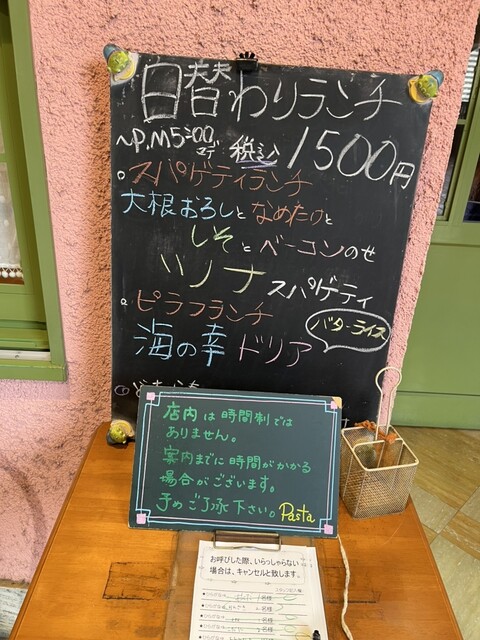 日替わりランチ
~P.M5:00まで 税込 1500円
スパゲティランチ
大根おろしとなめたけと
しそとベーコンのせ
ツナ スパゲティ
ピラフランチ
バターライス
海の幸ドリア
店内は時間制では
ありません。
案内までに時間がかかる
場合がございます。
予めご了承下さい。Pasta
お呼びした際、いらっしゃらない
場合は、キャンセルと致します。